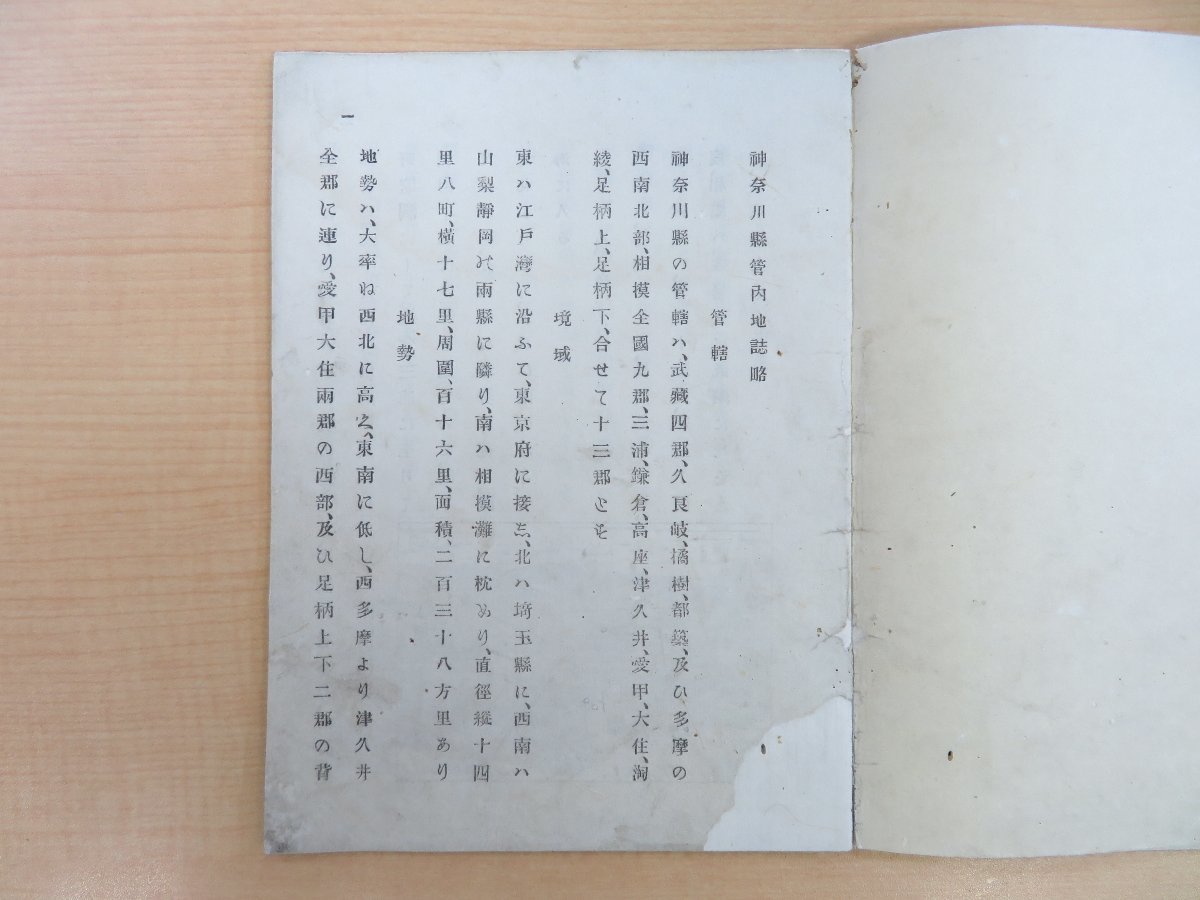 神奈川縣管內地誌略
管轄
神奈川縣の管轄ハ、武藏四郡、久良岐、橘樹、都築、及ひ多摩の
西南北部、相摸全國九郡、三浦、鎌倉、高座、津久井、愛甲、大住、淘
綾、足柄上、足柄下、合せて十三郡とを
境域
東ハ江戶灣に沿ふて、東京府に接し、北ハ埼玉縣に、西南ハ
山梨靜岡の兩縣に隣り、南ハ相摸灘に枕めり、直徑縱十四
里八町、橫十七里、周圍、百十六里、面積、二百三十八方里あり
地勢
地勢ハ、大率ね西北に高く、東南に低し、西多摩より津久井
全郡に連り、愛甲大住兩郡の西部、及ひ足柄上下二郡の背
一